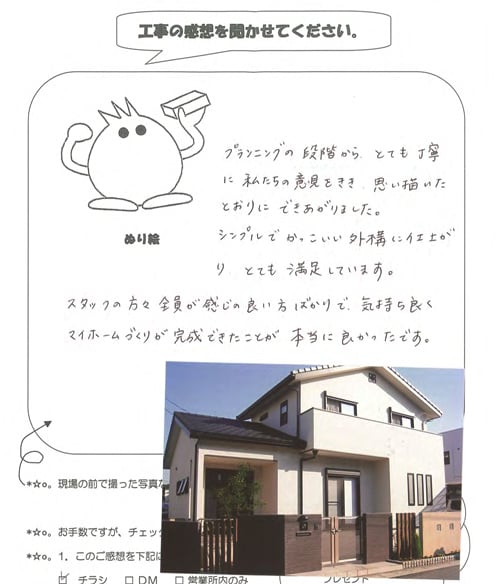 工事の感想を聞かせてください。
プランニングの段階から、とても丁寧
に私たちの意見をきき、思い描いた
とおりにできあがりました。
シンプルでかっこいい外構に仕上が
り、とても満足しています。
ぬり絵
スタッフの方々全員が感じの良い方ばかりで、気持ち良く
マイホームづくりが完成できたことが本当に良かったです。
*☆o。現場の前で撮った写真な
*☆o。お手数ですが、チェッ
*☆o。1、このご感想を下記に
チラシ □DM □営業所内のみ
プレゼント